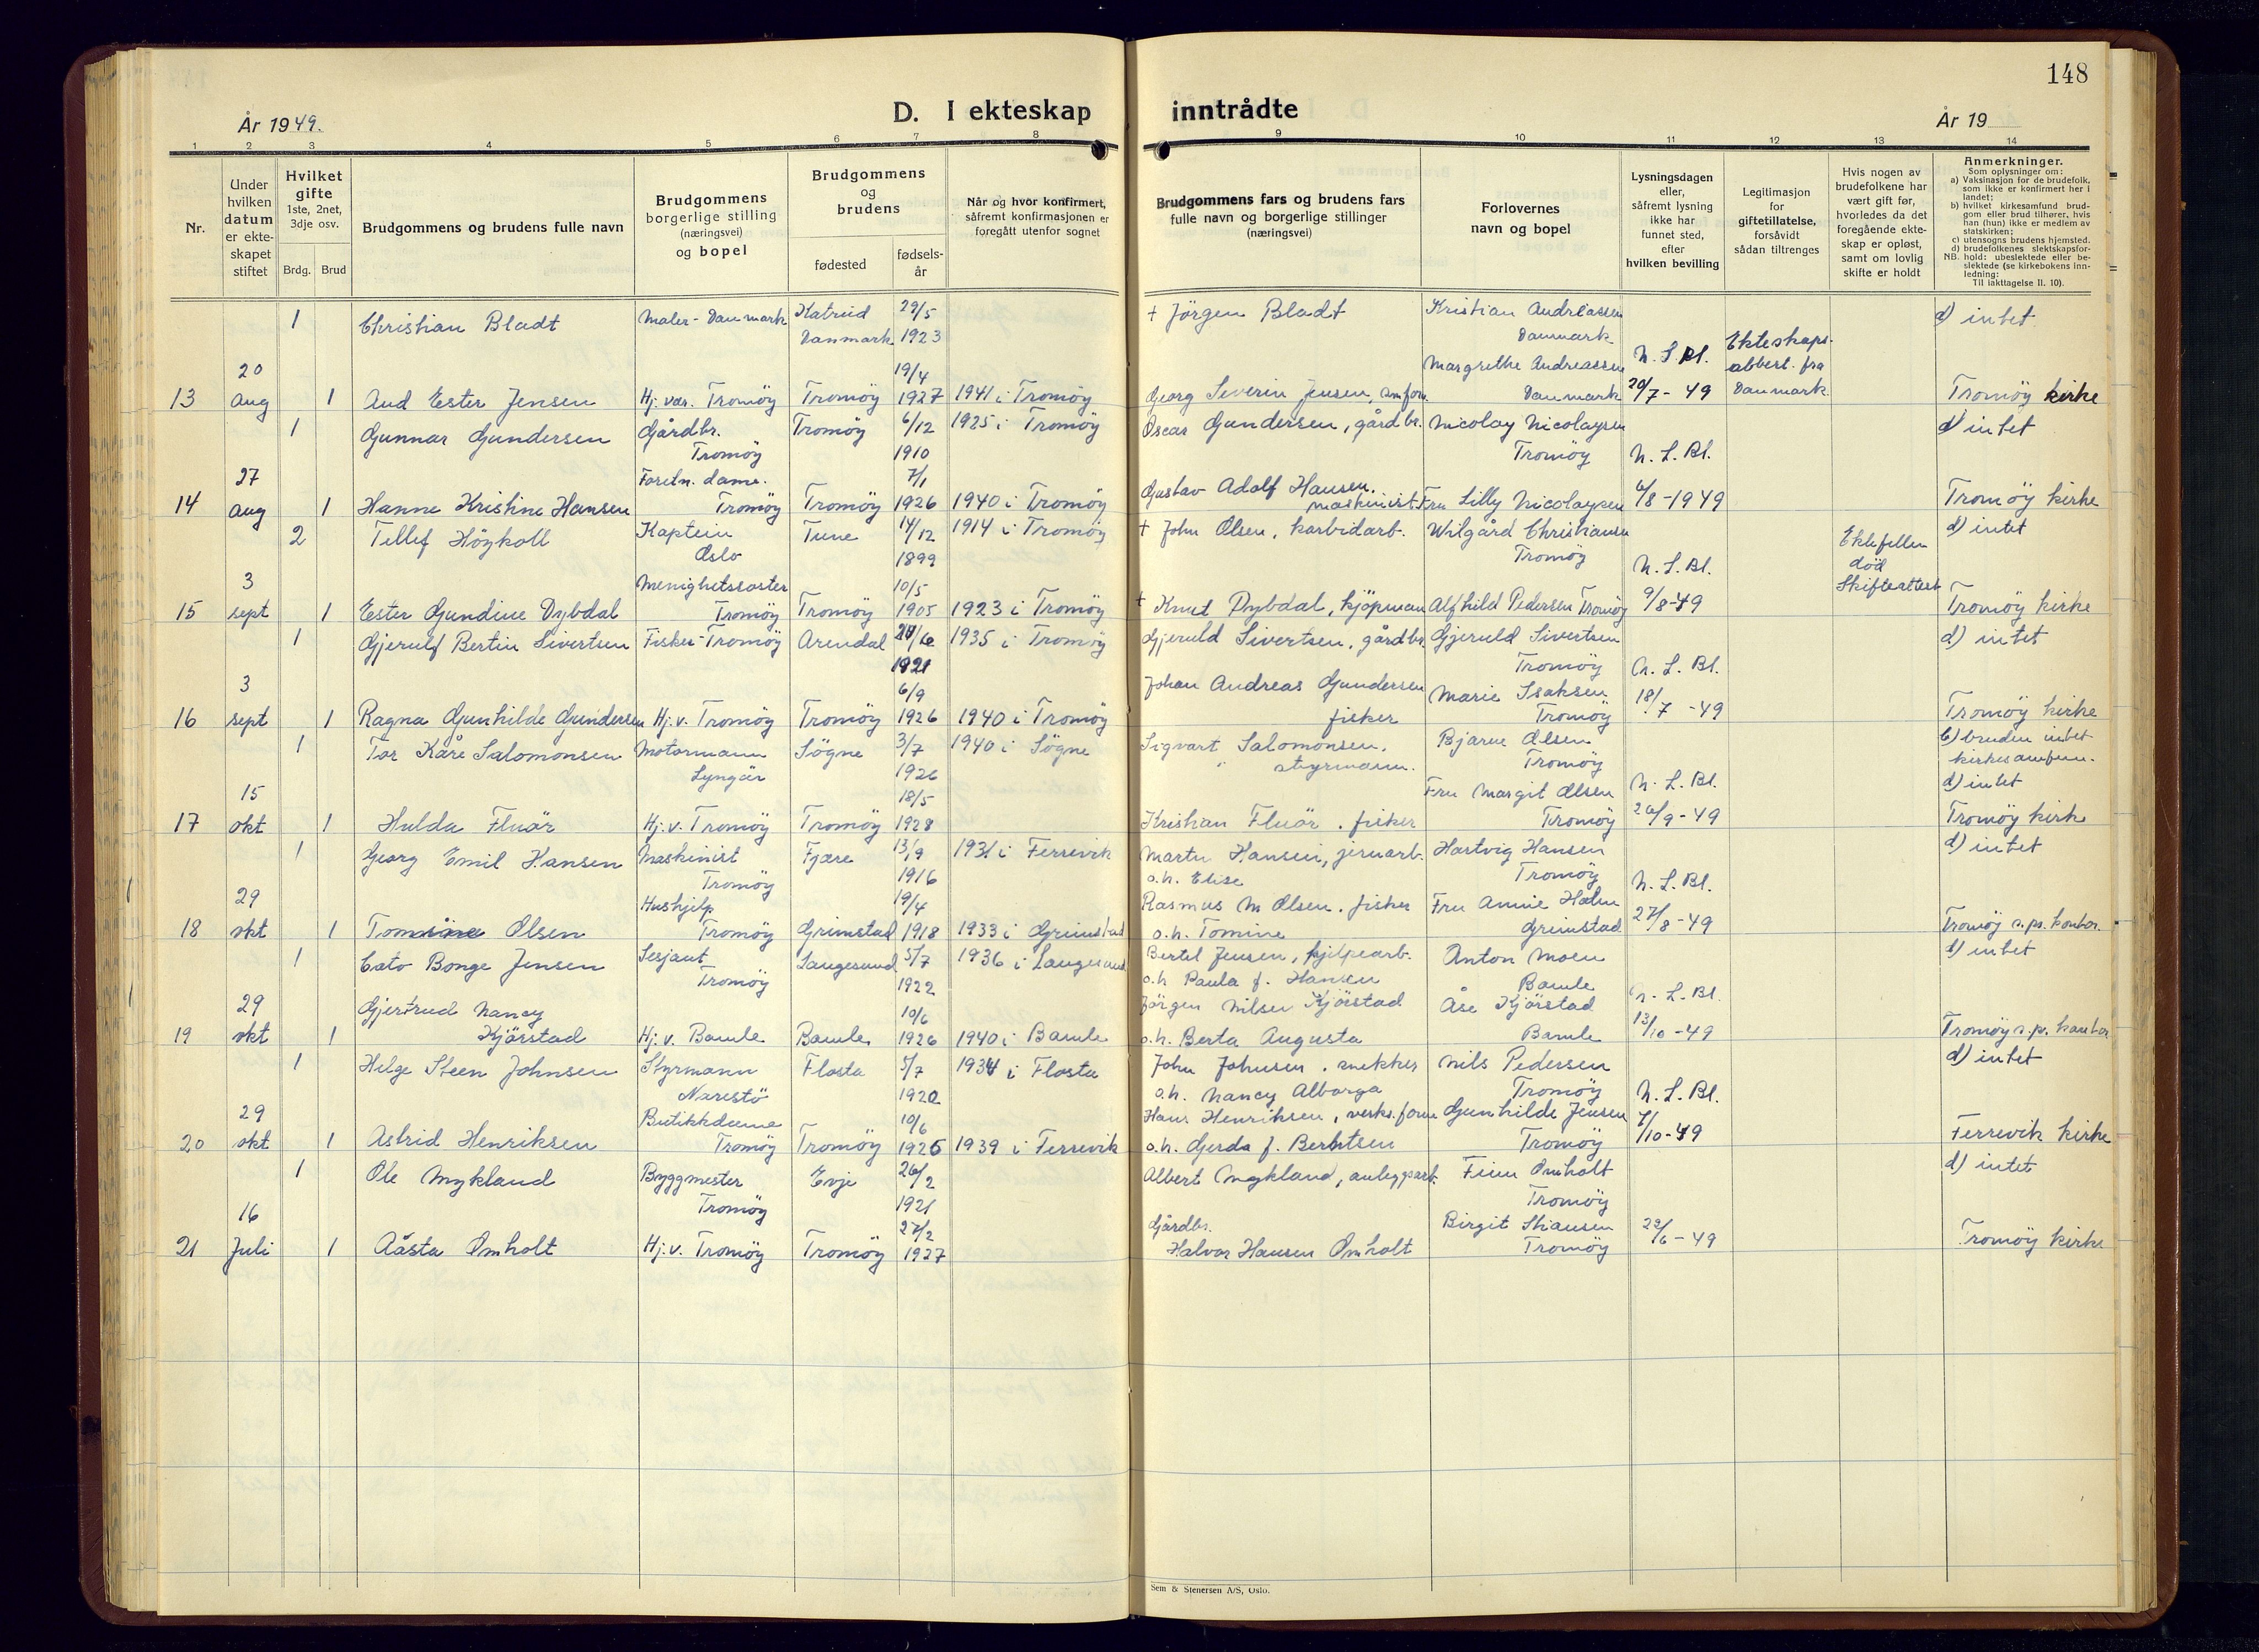 148
År 1949.
D. I ekteskap inntrådte
År 19
1 2 3 4 5 6 7 8 9 10 11 12 13 14
Nr.
Under hvilken datum er ekteskapet stiftet
Hvilket gifte
1ste, 2net, 3dje osv.
Brdg. Brud
Brudgommens og brudens fulle navn
Brudgommens borgerlige stilling (næringsvei) og bopel
Brudgommens og brudens
fødested
fødselsår
Når og hvor konfirmert, såfremt konfirmasjonen er foregått utenfor sognet
Brudgommens fars og brudens fars fulle navn og borgerlige stillinger (næringsvei)
Forlovernes navn og bopel
Lysningsdagen eller, såfremt lysning ikke har funnet sted, efter hvilken bevilling
Legitimasjon for giftetillatelse, forsåvidt sådan tiltrenges
Hvis nogen av brudefolkene har vært gift før, hvorledes da det foregående ekteskap er opløst, samt om lovlig skifte er holdt
Anmerkninger.
Som oplysninger om:
a) Vaksinasjon for de brudefolk, som ikke er konfirmert her i landet;
b) hvilket kirkesamfund brudgom eller brud tilhører, hvis han (hun) ikke er medlem av statskirken;
c) utensogns brudens hjemsted.
d) brudefolkenes slektskapsforhold: ubeslektede eller beslektede (se kirkebokens innledning:
NB.
Til iakttagelse II. 10).
1 Christian Bladt Maler - Danmark Katrud Danmark 29/5 1923 † Jörgen Bladt Kristian Andreassen Danmark d) intet
13 20 aug 1 Aud Ester Jensen Hj. vær. Tromöy Tromöy 19/4 1927 1941 i Tromöy Georg Severin Jensen, Margrethe Andreassen Danmark N. L. Bl. 20/7 - 49 Ekteskaps- fra Danmark Tromöy kirke
1 Gunnar Gundersen Gårdbr. Tromöy Tromöy 6/12 1910 1925 i Tromöy Oscar Gundersen, gårdbr. Nicolay Nicolaysen Tromöy N. L. Bl. d) intet
14 27 aug 1 Hanne Kristine Hansen Foretn. dame. Tromöy Tromöy 7/1 1926 1940 i Tromöy Gustav Adolf Hansen, maskinist Fru Lilly Nicolaysen 6/8-1949 Tromöy kirke
2 Tellef Höykoll Kaptein Oslo Tune 14/12 1899 1914 i Tromöy † John Olsen, karbidarb. Wilgård Christiansen Tromöy N. L. Bl. Ektefellen död Skifteattest d) intet
15 3 sept 1 Ester Gundine Dybdal Menighetssöster Tromöy Tromöy 10/5 1905 1923 i Tromöy † Knut Dybdal, kjöpman Alfhild Pedersen Tromöy 9/8-49 Tromöy kirke
1 Gjerulf Bertin Sivertsen Fisker - Tromöy Arendal 1921 1935 i Tromöy Gjeruld Sivertsen, gårdbr. Gjeruld Sivertsen Tromöy N. L. Bl. d) intet
16 3 sept 1 Ragna Gunhilde Gundersen Hj. v. Tromöy Tromöy 6/9 1926 1940 i Tromöy Johan Andreas Gundersen fisker Marie Isaksen Tromöy 18/7 - 49 Tromöy kirke
1 Tor Kåre Salomonsen Motormann Lyngör Sögne 3/7 1926 1940 i Sögne Sigvart Salomonsen, styrmann. Bjarne Olsen Tromöy N. L. Bl. b) bruden intet kirkesamfunn. d) intet
17 15 okt 1 Hulda Fluör Hj. v. Tromöy Tromöy 18/5 1928 Kristian Fluör. fisker Fru Margit Olsen Tromöy 26/9 - 49 Tromöy kirke
1 Georg Emil Hansen Maskinist Tromöy Fjære 13/9 1916 1931 i Færrevik Martin Hansen, jernarb. o.h. Elise Hartvig Hansen Tromöy N. L. Bl. d) intet
18 29 okt 1 Tomine Olsen Hushjelp Tromöy Grimstad 19/4 1918 1933 i Grimstad Rasmus M Olsen. fisker o.h. Tomine Fru Annie Holm Grimstad 27/8 - 49 Tromöy s.pr. kontor.
1 Cato Bonge Jensen Sesjant Tromöy Langesund 5/7 1922 1936 i Langesund Bertel Jensen, hjelpearb. o.h Paula f. Hansen Anton Moen Bamle N. L. Bl. d) intet
19 29 okt 1 Gjertrud Nancy Kjörstad Hj. v. Bamle Bamle 10/6 1926 1940 i Bamle Jörgen Nilsen Kjörstad o.h. Berta Augusta Åse Kjörstad Bamle 13/10 - 49 Tromöy s.pr. kontor
1 Helge Steen Johnsen Styrmann Narestö Flosta 5/7 1920 1934 i Flosta John Johnsen. snekker o.h. Nancy Alborga Nils Pedersen Tromöy N. L. Bl. d) intet
20 29 okt 1 Astrid Henriksen Butikkdame Tromöy Tromöy 10/6 1925 1939 i Færrevik Hans Henriksen, verks.form o.h. Gerda f. Berntsen Gunhilde Jensen Tromöy 7/10-49 Færrevik kirke
1 Ole Mykland Byggmester Tromöy Evje 26/2 1921 Albert Mykland, anleggsarb. Finn Omholt Tromöy d) intet
21 16 Juli 1 Aåsta Omholt Hj. v. Tromöy Tromöy 27/2 1927 Gårdbr. Halvor Hansen Omholt Birgit Stiansen Tromöy 22/6 - 49 Tromöy kirke
Sem & Stenersen A/S, Oslo.